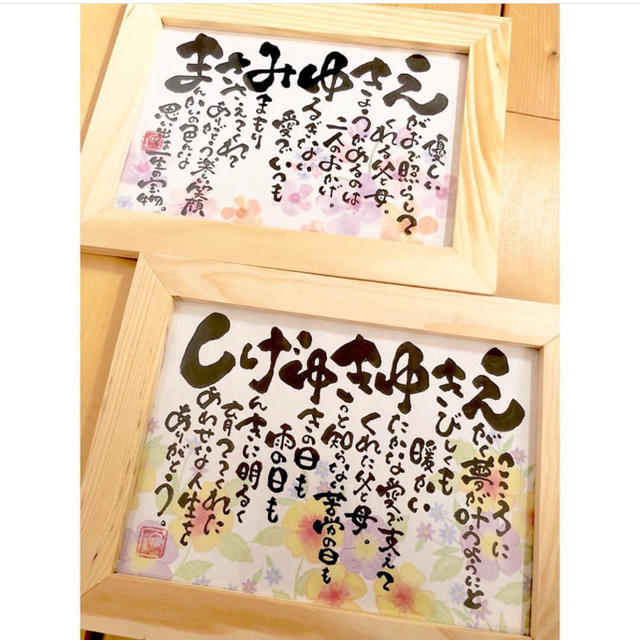 優しい
えがおで照らして
くれる父と母。
きょうがあるのは
二人のおかげ。
ゆるぎない
愛でいつも
みまもり
ささえてくれて
ありがとう楽しい笑顔
まんかいの色んな
思い出は
一生の宝物。
こころに
えがく夢が叶うようにと
きびしくも
暖かい
ゆたかな愛で支えて
くれた父母。
きっと知らない苦労の日も
ゆきの日も
雨の日も
げんきに明るく
育ててくれて
しあわせな人生を
ありがとう。